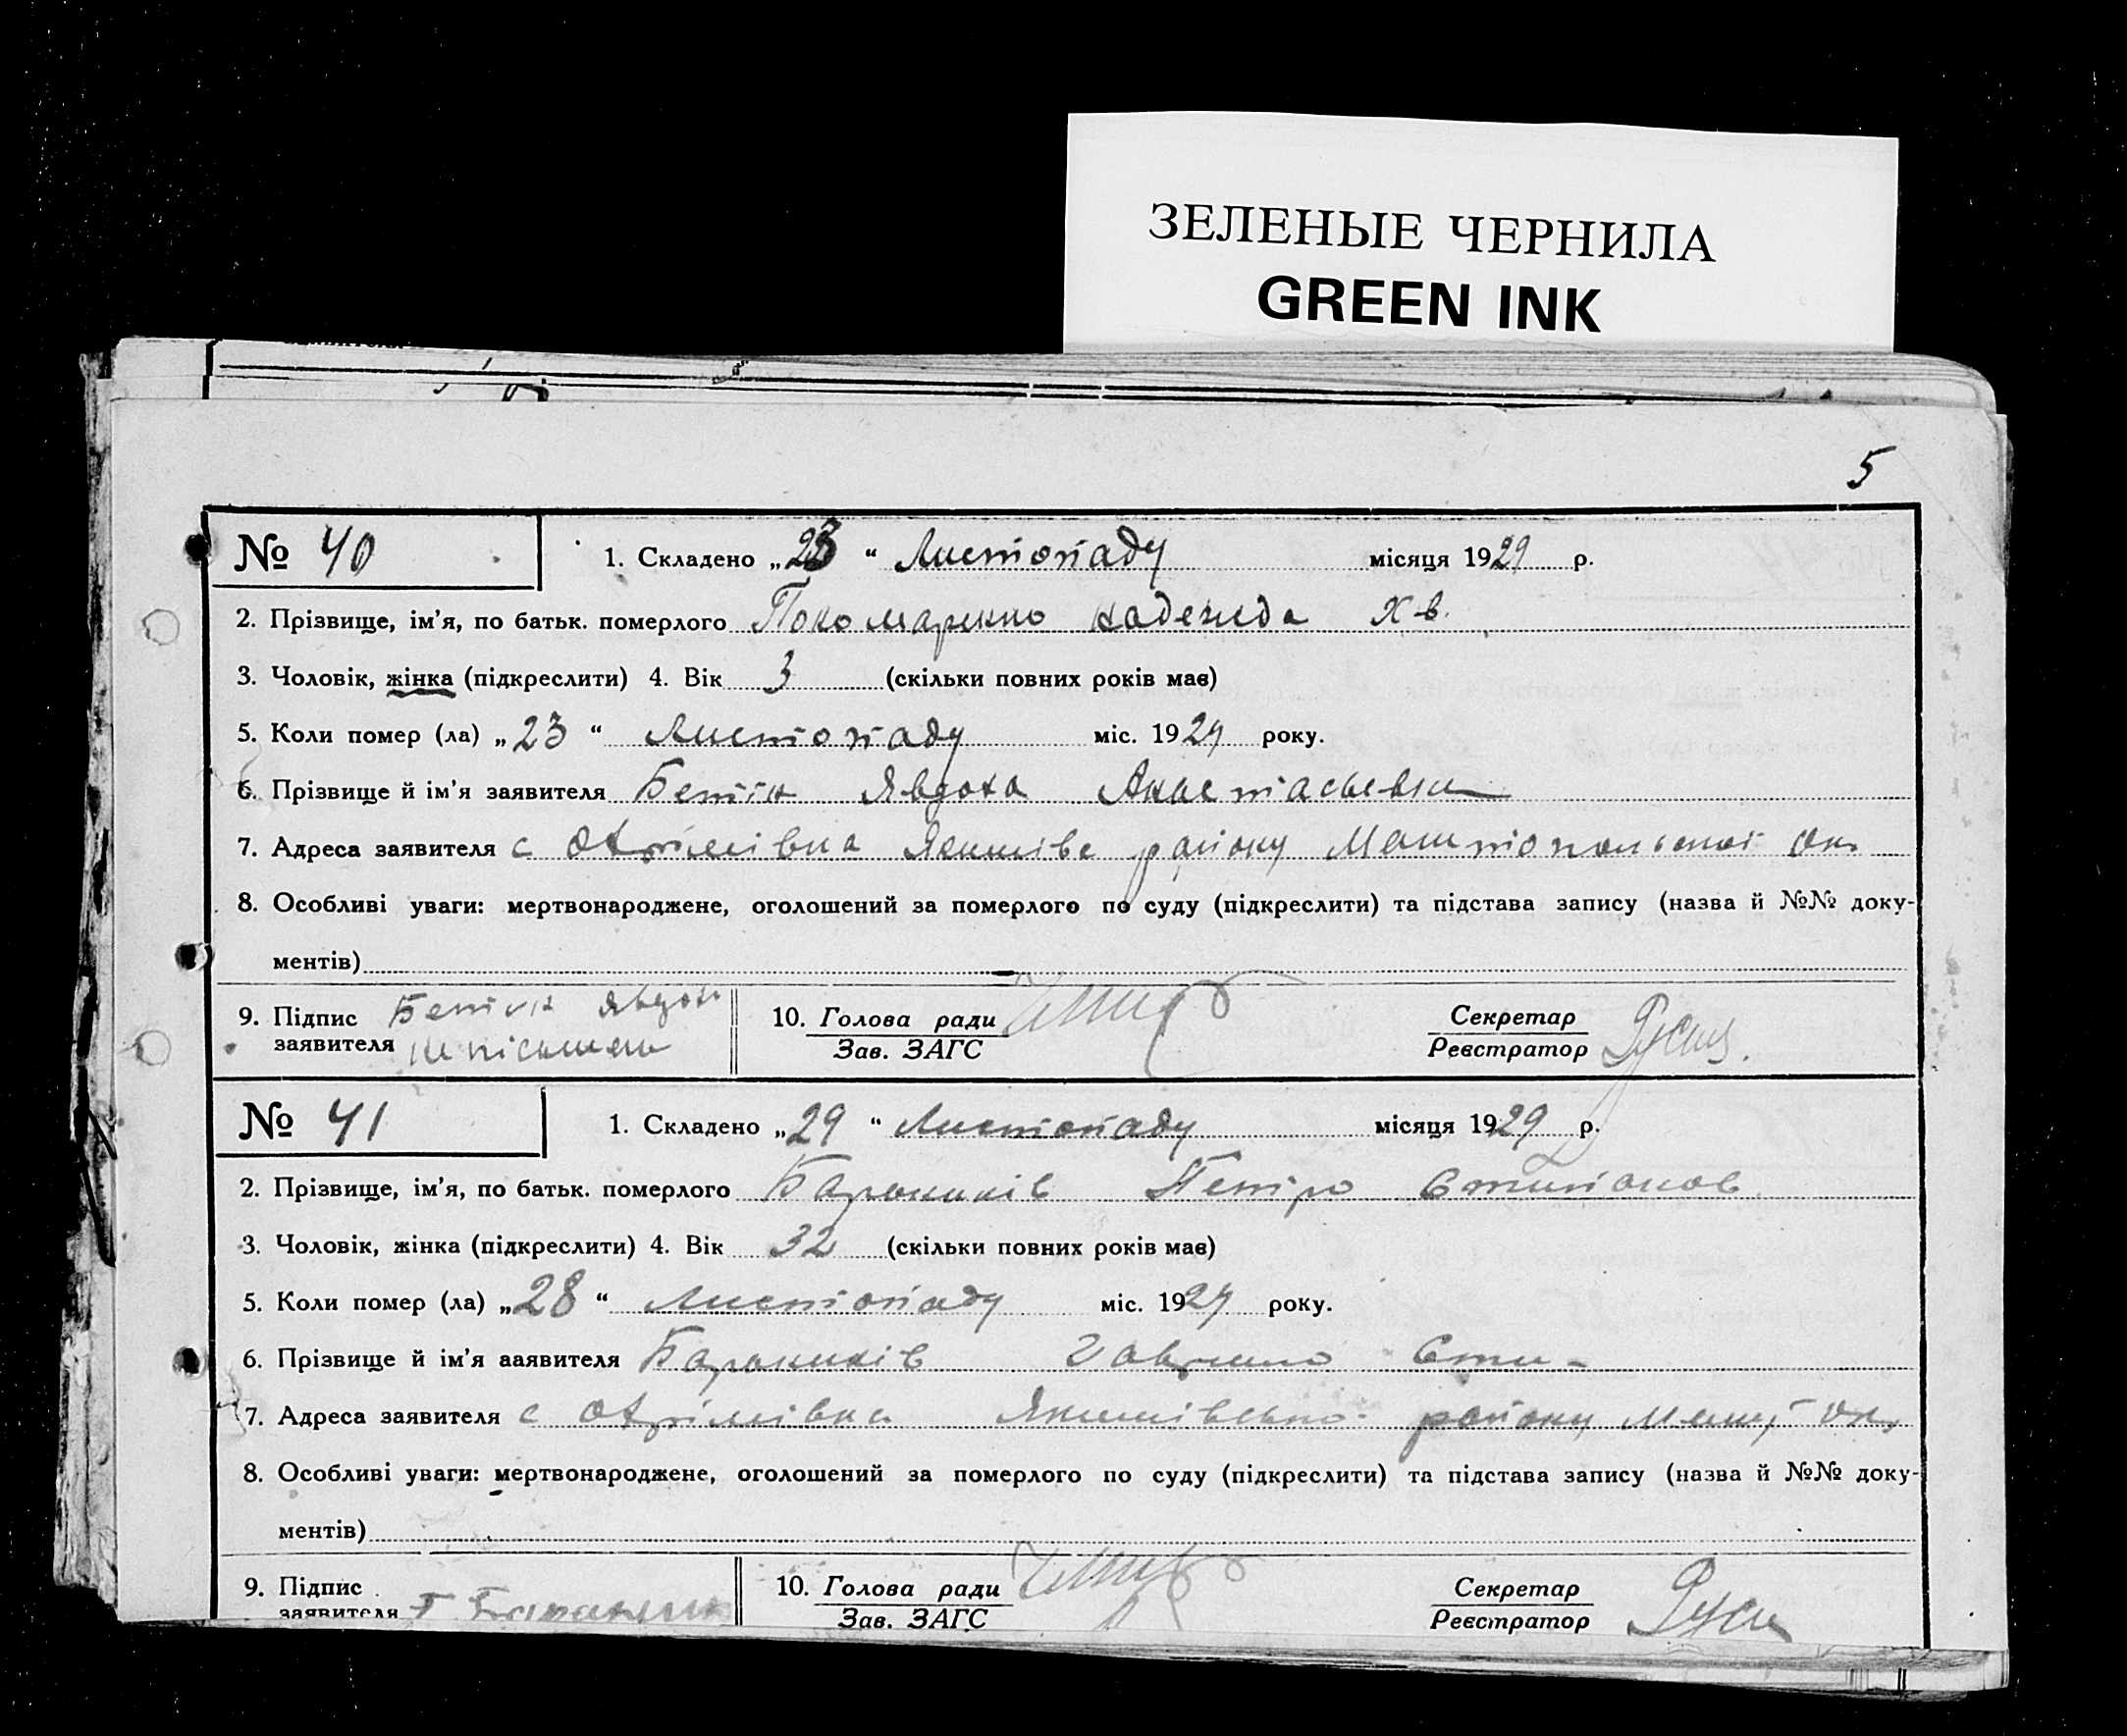 ЗЕЛЕНЫЕ ЧЕРНИЛА
GREEN INK
5
№ 40
1. Складено „23“ Листопаду місяця 1929 р.
2. Прізвище, ім'я, по батьк. померлого Надежда Хв.
3. Чоловік, жінка (підкреслити) 4. Вік 3 (скільки повних років має)
5. Коли помер (ла) „23“ Листопаду міс. 1929 року.
6. Прізвище й ім'я заявителя Бетін Явдоха
7. Адреса заявителя с району Ок.
8. Особливі уваги: мертвонароджене, оголошений за померлого по суду (підкреслити) та підстава запису (назва й №№ доку-
ментів)
9. Підпис Бетін Явдох
заявителя
10. Голова ради
Зав. ЗАГС
Секретар
Реєстратор
№ 41
1. Складено „29“ Листопаду місяця 1929 р.
2. Прізвище, ім'я, по батьк. померлого Петро
3. Чоловік, жінка (підкреслити) 4. Вік 32 (скільки повних років має)
5. Коли помер (ла) „28“ Листопаду міс. 1929 року.
6. Прізвище й ім'я ааявителя Гаврило
7. Адреса заявителя с району ок.
8. Особливі уваги: мертвонароджене, оголошений за померлого по суду (підкреслити) та підстава запису (назва й №№ доку-
ментів)
9. Підпис
заявителя
10. Голова ради
Зав. ЗАГС
Секретар
Реєстратор